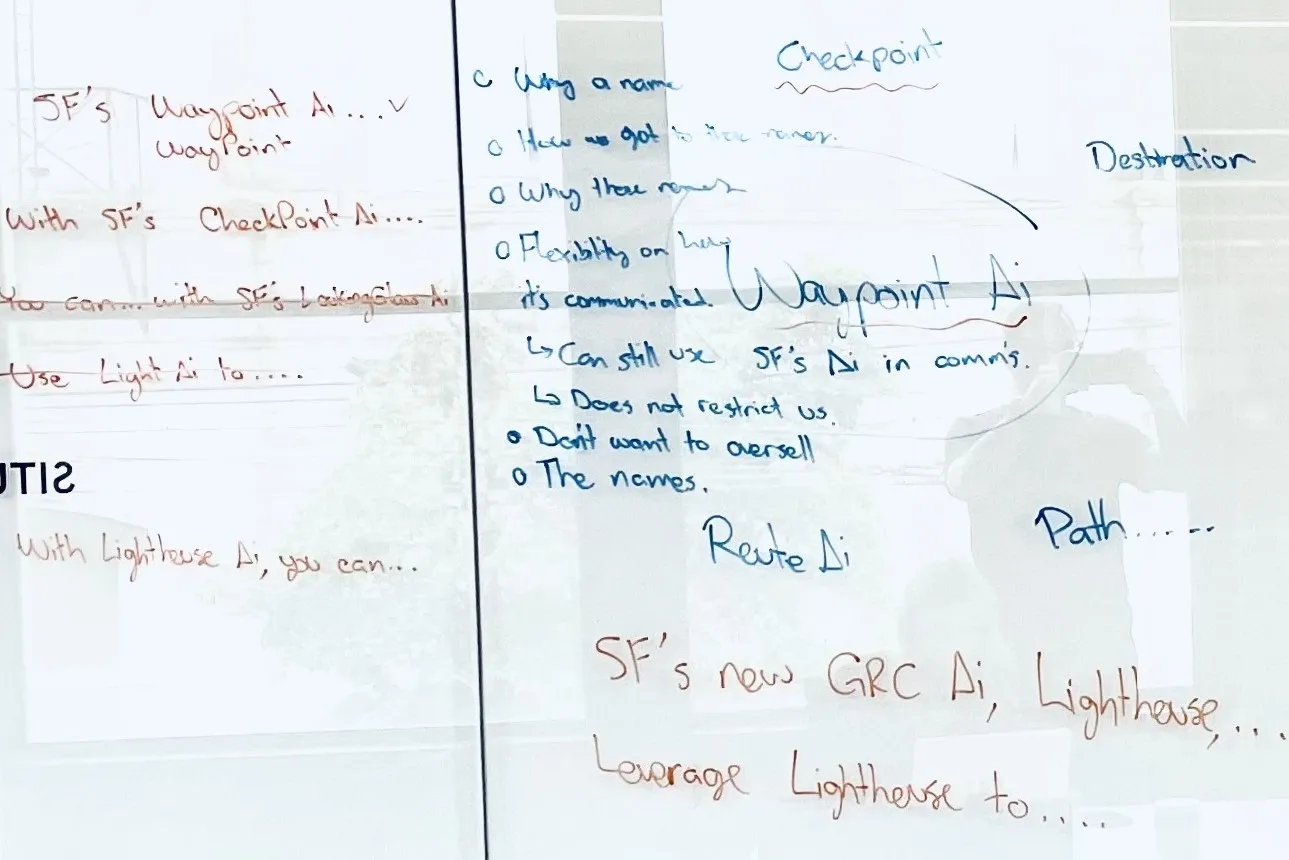 SF's Waypoint Ai...
WayPoint
With SF's CheckPoint Ai....
You can... with SF's LookingGlass Ai
Use Light Ai to....
SITU
With Lighthouse Ai, you can...
Checkpoint
Destination
Why a name
How we got to these names.
Why these names
Flexiblity on how
it's communicated.
↳ Can still use SF's Ai in comm's.
↳ Does not restrict us.
Don't want to oversell
The names.
Waypoint Ai
Route Ai
Path.....
SF's new GRC Ai, Lighthouse,...
Leverage Lighthouse to....